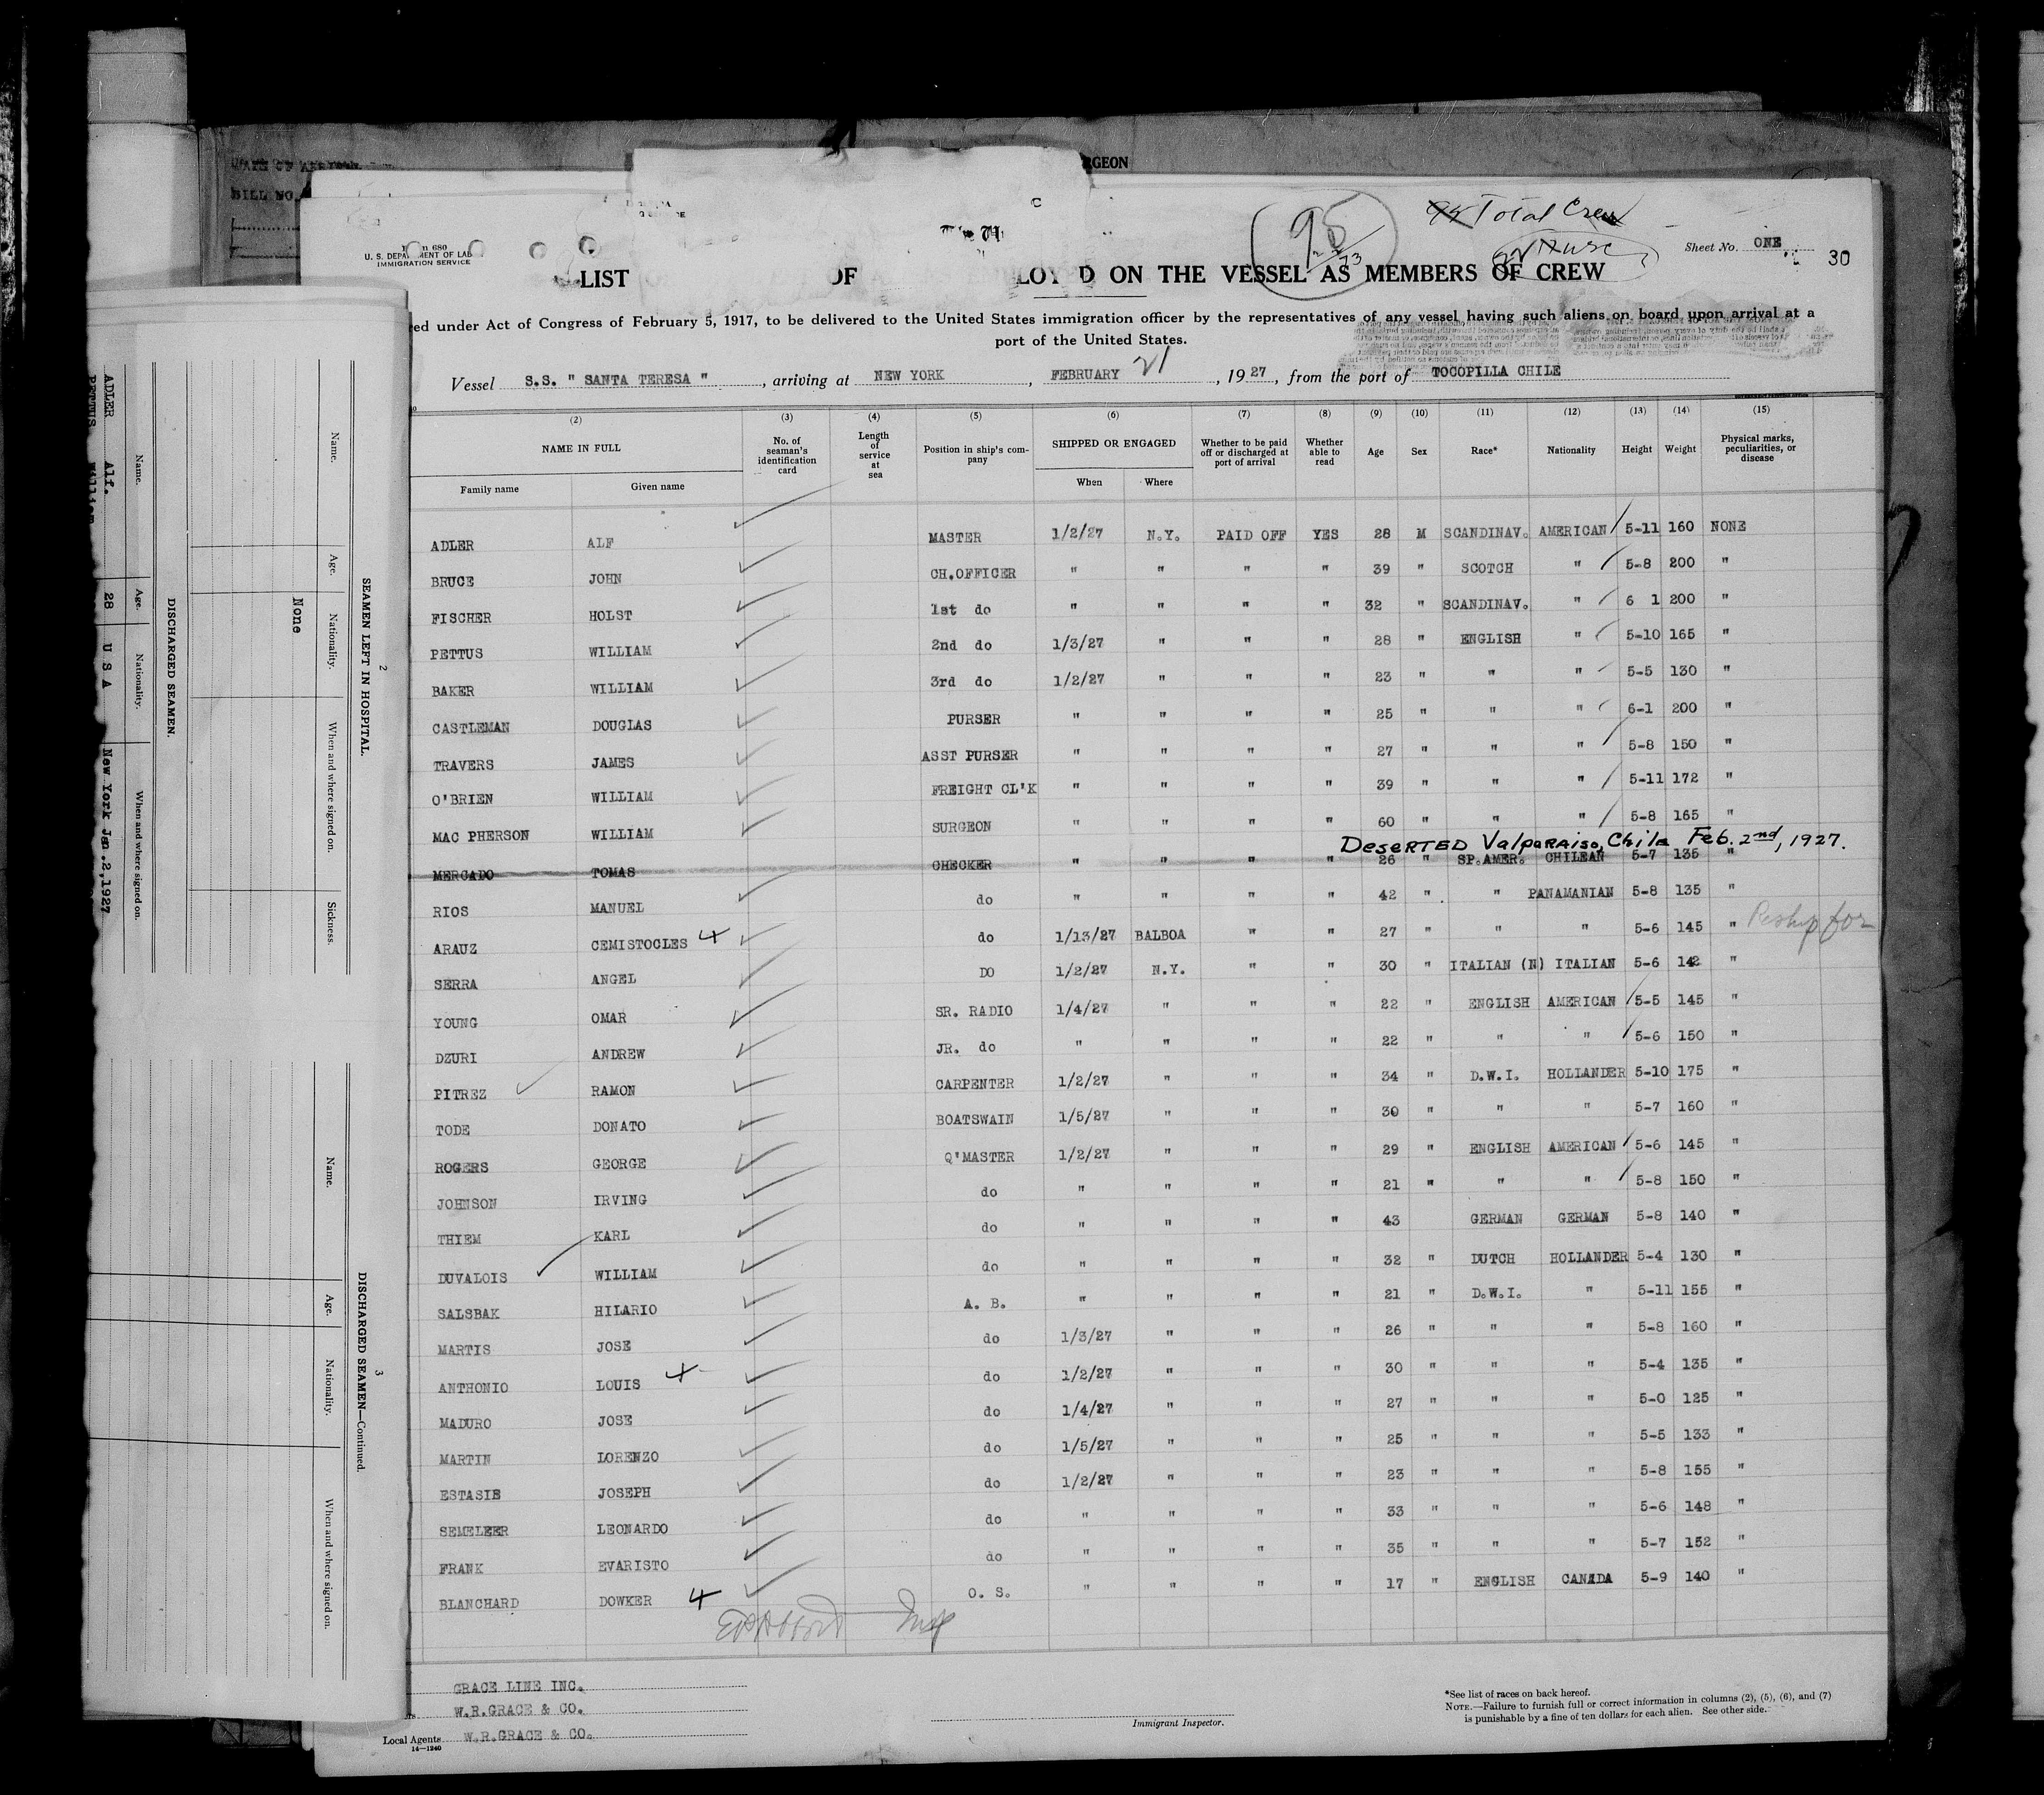 DATE OF ARRIVAL
BILL NO.
RGEON
680
U. S. DEPARTMENT OF LAB
IMMIGRATION SERVICE
95
Total Crew
Sheet No. ONE
30
LIST OF LOY D ON THE VESSEL AS MEMBERS OF CREW
ed under Act of Congress of February 5, 1917, to be delivered to the United States immigration officer by the representatives of any vessel having such aliens on board upon arrival at a
port of the United States.
Vessel S.S. " SANTA TERESA " , arriving at NEW YORK , FEBRUARY 21 , 19 27 , from the port of TOCOPILLA CHILE
(2) (3) (4) (5) (6) (7) (8) (9) (10) (11) (12) (13) (14) (15)
NAME IN FULL No. of seaman's identification card Length of service at sea Position in ship's company SHIPPED OR ENGAGED Whether to be paid off or discharged at port of arrival Whether able to read Age Sex Race* Nationality Height Weight Physical marks, peculiarities, or disease
Family name Given name When Where
ADLER ALF MASTER 1/2/27 N.Y. PAID OFF YES 28 M SCANDINAV. AMERICAN 5-11 160 NONE
BRUCE JOHN CH.OFFICER " " " " 39 " SCOTCH " 5-8 200 "
FISCHER HOLST 1st do " " " " 32 " SCANDINAV. " 6 1 200 "
PETTUS WILLIAM 2nd do 1/3/27 " " " 28 " ENGLISH " 5-10 165 "
BAKER WILLIAM 3rd do 1/2/27 " " " 23 " " " 5-5 130 "
CASTLEMAN DOUGLAS PURSER " " " " 25 " " " 6-1 200 "
TRAVERS JAMES ASST PURSER " " " " 27 " " " 5-8 150 "
O'BRIEN WILLIAM FREIGHT CL'K " " " " 39 " " " 5-11 172 "
MAC PHERSON WILLIAM SURGEON " " " " 60 " " " 5-8 165 "
DESERTED Valparaiso, Chile Feb. 2nd, 1927.
MERCADO TOMAS CHECKER " " " " 26 " SP.AMER. CHILEAN 5-7 135 "
RIOS MANUEL do " " " " 42 " " PANAMANIAN 5-8 135 "
ARAUZ CEMISTOCLES do 1/13/27 BALBOA " " 27 " " " 5-6 145 " Reship for
SERRA ANGEL DO 1/2/27 N.Y. " " 30 " ITALIAN (N) ITALIAN 5-6 142 "
YOUNG OMAR SR. RADIO 1/4/27 " " " 22 " ENGLISH AMERICAN 5-5 145 "
DZURI ANDREW JR. do " " " " 22 " " " 5-6 150 "
PITREZ RAMON CARPENTER 1/2/27 " " " 34 " D.W.I. HOLLANDER 5-10 175 "
TODE DONATO BOATSWAIN 1/5/27 " " " 30 " " " 5-7 160 "
ROGERS GEORGE Q'MASTER 1/2/27 " " " 29 " ENGLISH AMERICAN 5-6 145 "
JOHNSON IRVING do " " " " 21 " " " 5-8 150 "
THIEM KARL do " " " " 43 GERMAN GERMAN 5-8 140 "
DUVALOIS WILLIAM do " " " " 32 " DUTCH HOLLANDER 5-4 130 "
SALSBAK HILARIO A. B. " " " " 21 " D.W.I. " 5-11 155 "
MARTIS JOSE do 1/3/27 " " " 26 " " " 5-8 160 "
ANTHONIO LOUIS do 1/2/27 " " " 30 " " " 5-4 135 "
MADURO JOSE do 1/4/27 " " " 27 " " " 5-0 125 "
MARTIN LORENZO do 1/5/27 " " " 25 " " " 5-5 133 "
ESTASIE JOSEPH do 1/2/27 " " " 23 " " " 5-8 155 "
SEMELEER LEONARDO do " " " " 33 " " " 5-6 148 "
FRANK EVARISTO do " " " " 35 " " " 5-7 152 "
BLANCHARD DOWKER O. S. " " " " 17 " ENGLISH CANADA 5-9 140 "
GRACE LINE INC.
W.R.GRACE & CO.
Local Agents W.R.GRACE & CO.
14—1240
Immigrant Inspector.
*See list of races on back hereof.
NOTE.—Failure to furnish full or correct information in columns (2), (5), (6), and (7)
is punishable by a fine of ten dollars for each alien. See other side.
2
SEAMEN LEFT IN HOSPITAL.
Name. Age. Nationality. When and where signed on. Sickness.
None
DISCHARGED SEAMEN.
Name. Age. Nationality. When and where signed on.
ADLER Alf. 28 U S A New York Jan.2,1927
PETTUS William
3
DISCHARGED SEAMEN—Continued.
Name. Age. Nationality. When and where signed on.